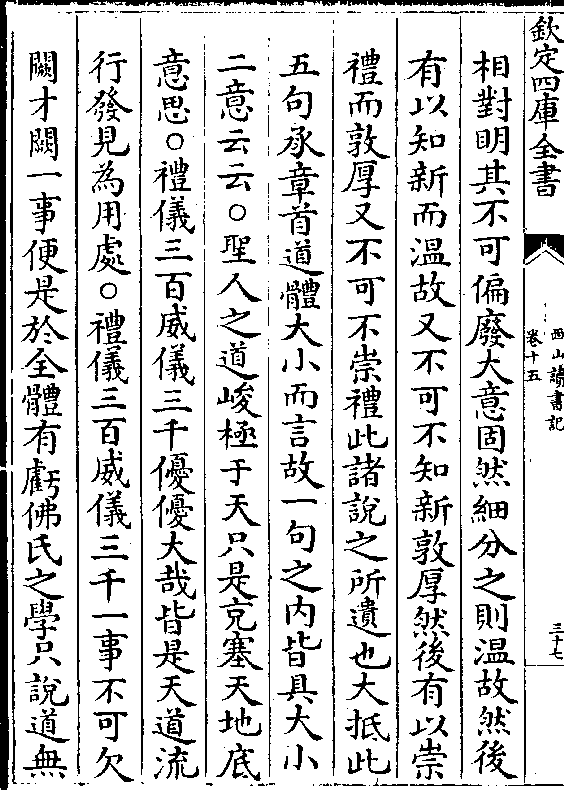 欽定四庫全書
西山讀書記
卷十五
三十七
相對明其不可偏廢大意固然細分之則温故然後
有以知新而温故又不可不知新敦厚然後有以崇
禮而敦厚又不可不崇禮此諸説之所遺也大抵此
五句承章首道體大小而言故一句之内皆具大小
二意云云○聖人之道峻極于天只是充塞天地底
意思○禮儀三百威儀三千優優大哉皆是天道流
行發見為用處○禮儀三百威儀三千一事不可欠
闕才闕一事便是於全體有虧佛氏之學只説道無